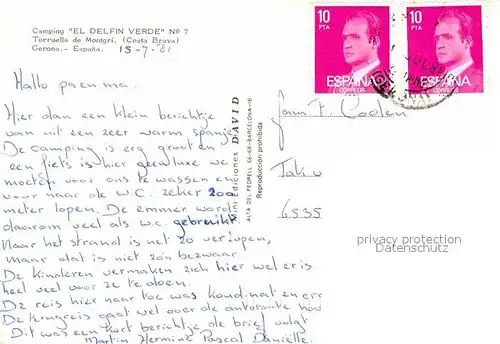 Camping "EL DELFIN VERDE" Nº 7
Torruella de Montgrí. (Costa Brava)
Gerona.- España. 15-7.'81
10 PTA
10 PTA
ESPAÑA
CORREOS
ESPAÑA
CORREOS
Hallo pa en ma.
Hier dan een klein berichtje
van uit een zeer warm spanje
De camping is erg groot en
een fiets is hier geen luxe we
moeten voor ons te wassen en
voor naar de w.C. zeker 200
meter lopen. De emmer word
daarom veel als w.c. gebruikt
Naar het strand is net zo ver lopen,
maar dat is niet zo'n bezwaar.
De kinderen vermaken zich hier wel er is
heel veel voor ze te doen.
De reis hier naar toe was koud. nat en
De terugreis gaat wel over de autoroute
Dit was een kort berichtje de brief volgt
Martin Hermine Pascal Danielle.
Mini Ediciones DAVID
ALTA DEL PEDRELL 66-68-BARCELONA-16
Reproducción prohibida
Fam
6535
privacy protection
Datenschutz